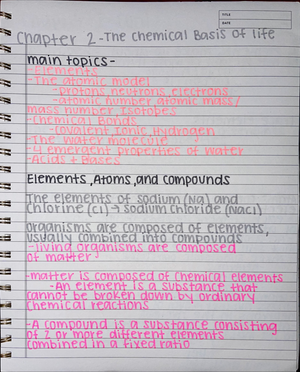 TITLE
DATE
Chapter 2-The Chemical Basis of life
main topics-
-Elements
-The atomic model
-protons, neutrons, electrons
-atomic number, atomic mass/
mass number, Isotobes
-Chemical Bonds
-Covalent, Ionic, Hydrogen
-The water molecule
-4 emergent properties of water
-Acids + Bases
Elements, Atoms, and Compounds
The elements of sodium (Na) and
Chlorine (Cl) → sodium Chloride (NaCl)
organisms are composed of elements,
usually combined into compounds
-living organisms are composed
of matter
-matter is composed of chemical elements
-An element is a substance that
cannot be broken down by ordinary
chemical reactions
-A compound is a substance consisting
of 2 or more different elements
combined in a fixed ratio